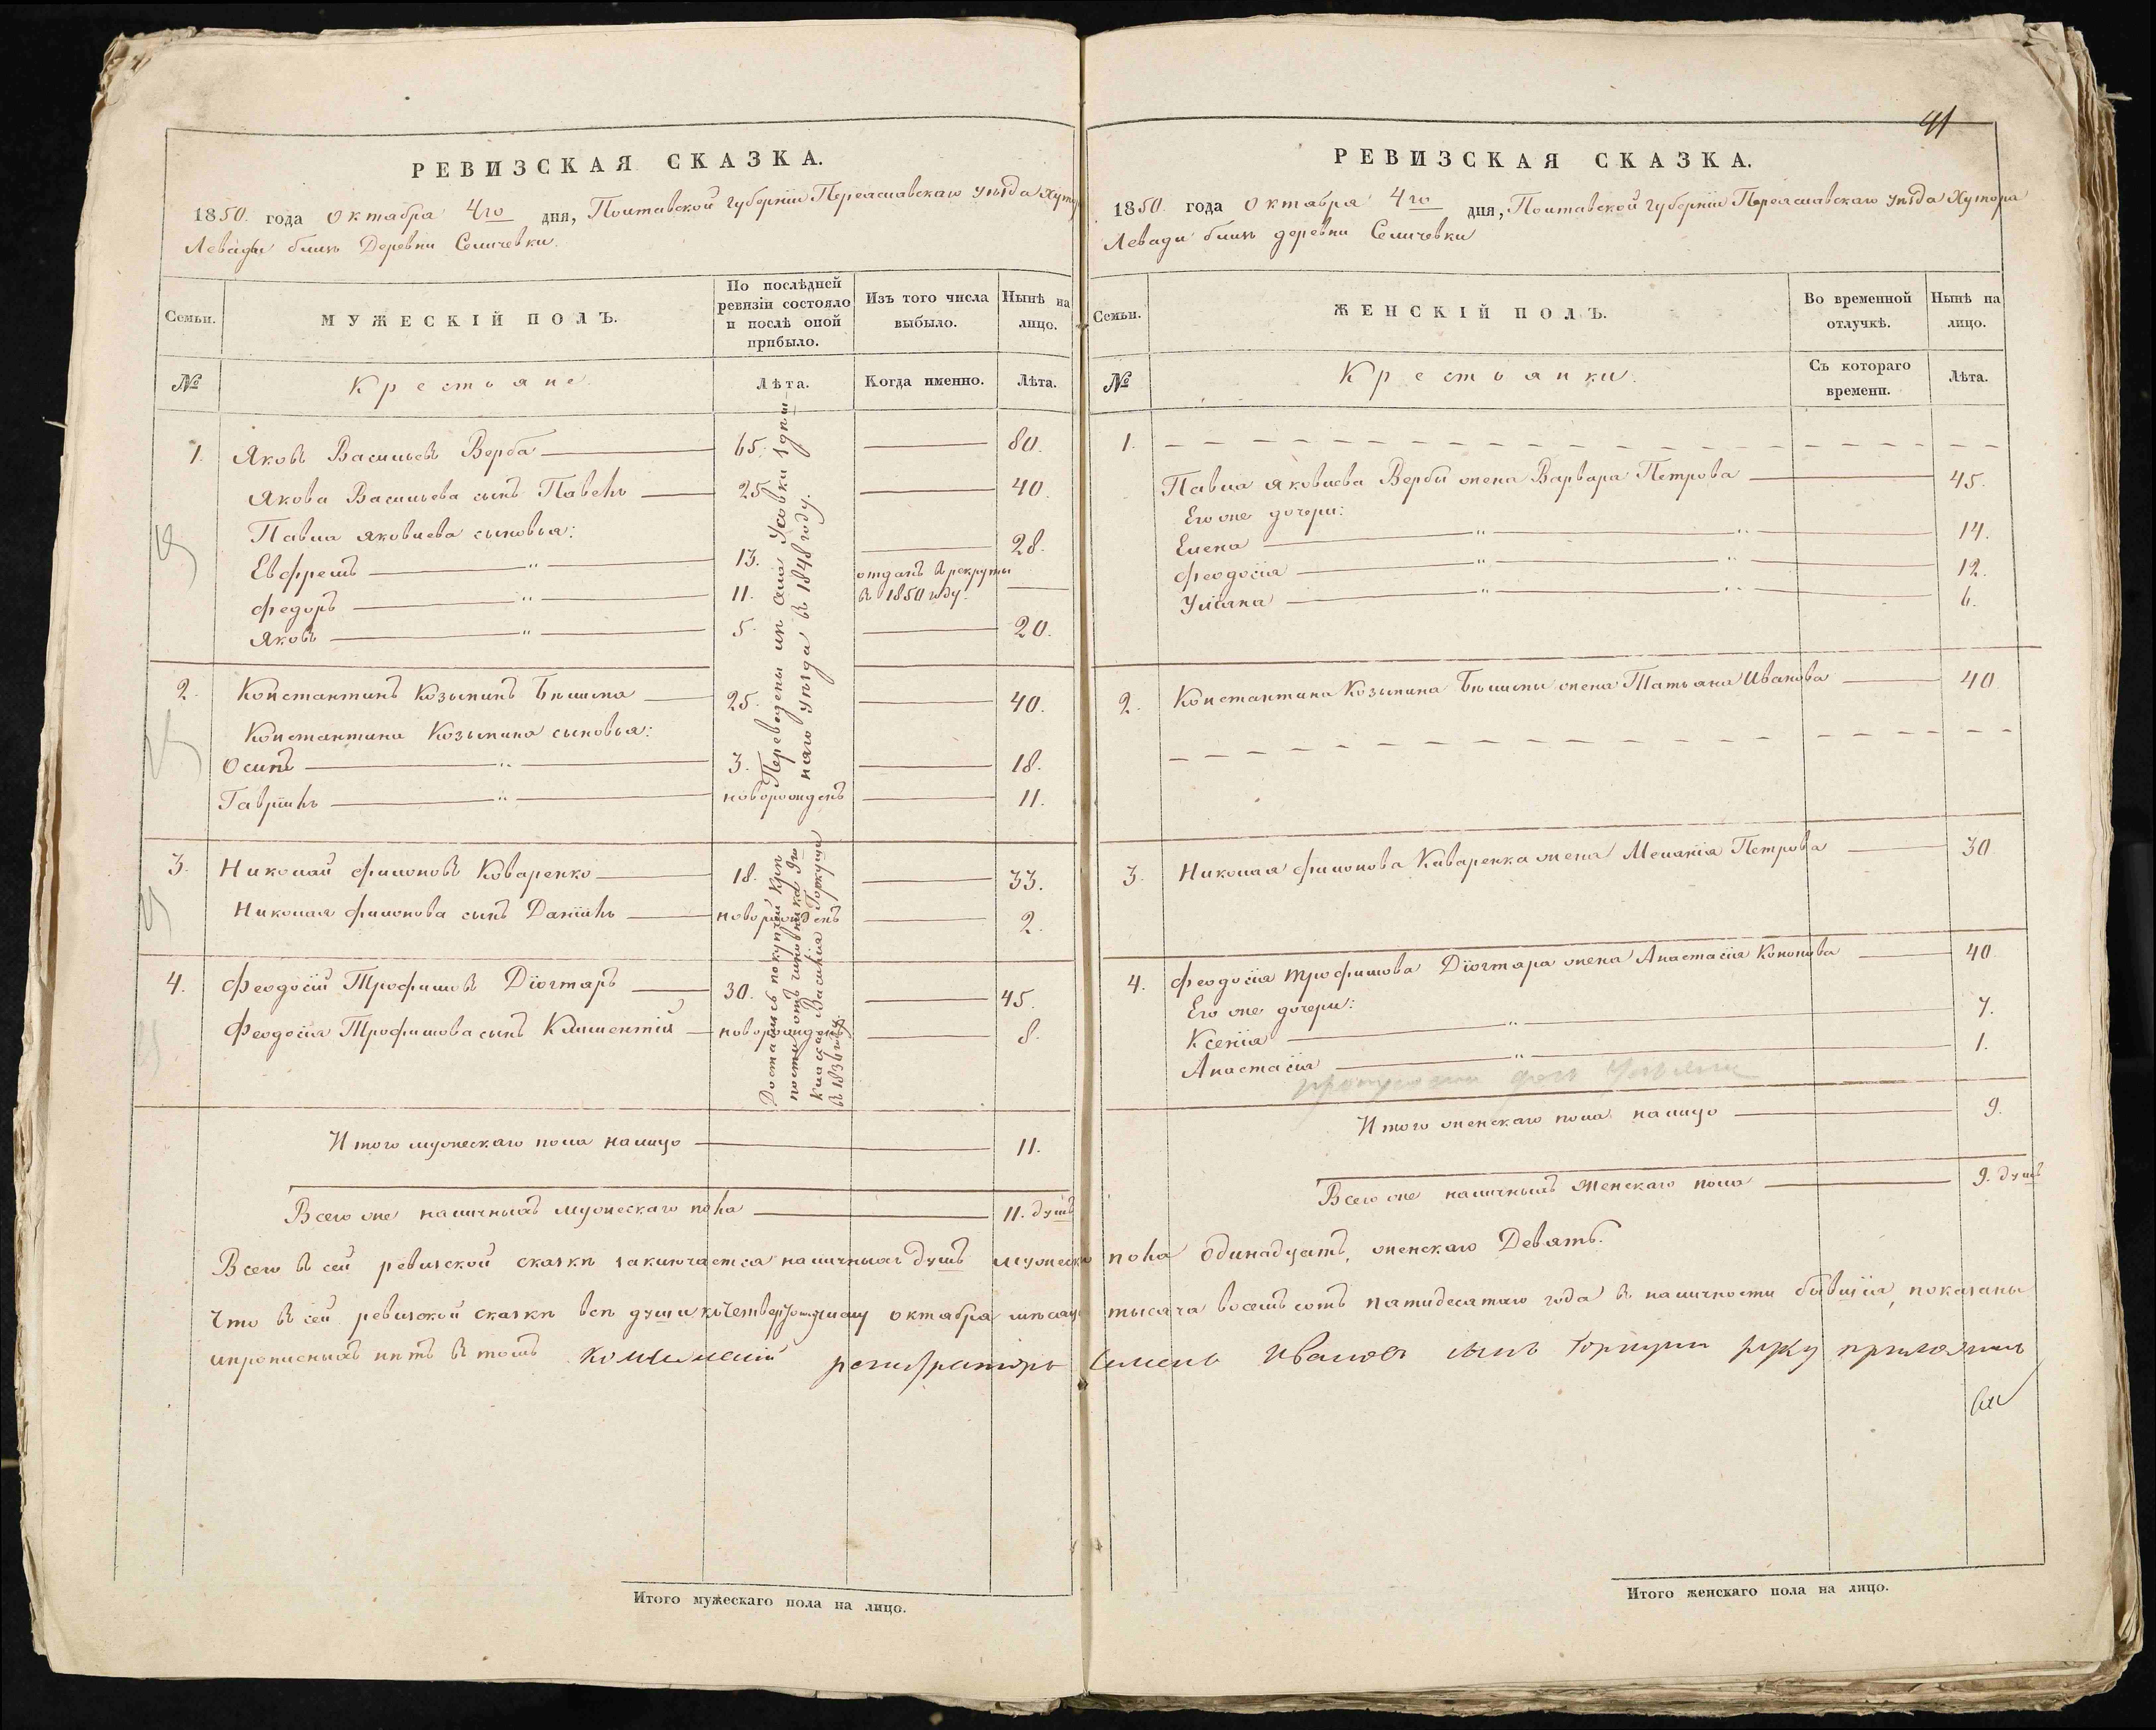 41
РЕВИЗСКАЯ СКАЗКА.
1850. года Октабра 4го дня, Полтавской губерніи Переяславскаго уѣзда Хутор
Левады близь Деревни Селичевки.
Семьи.
МУЖЕСКІЙ ПОЛЪ.
По послѣдней ревизіи состояло и послѣ оной прибыло.
Изъ того числа выбыло.
Нынѣ на лицо.
№
Крестьяне.
Лѣта.
Когда именно.
Лѣта.
1. Яковъ Васильевъ Верба 65. 80.
Якова Васильева сынъ Павелъ 25. 40.
Павла Яковлева сыновья:
Евфремъ " 13. 28.
Федоръ " 11. отданъ в рекруты в 1850 году.
Яковъ " 5. 20.
2. Константинъ Козьминъ 25. 40.
Константина Козьмина сыновья:
Осипъ " 3. 18.
Гавріилъ " новорожденъ 11.
Переведены изъ села Усовки здѣш-
няго уѣзда в 1848 году.
3. Николай Филоновъ Коваренко 18. 33.
Николая Филонова сынъ Даніилъ новорожденъ 2.
4. Феодосій Трофимовъ Діогтаръ 30. 45.
Феодосія Трофимова сынъ Климентій новорожденъ 8.
Достались по купчей крѣ
пости отъ чиновника 9го
класа Василія Горкуши
в 1836 году.
Итого мужескаго пола налицо 11.
Всего же наличныхъ мужескаго пола 11. душъ
РЕВИЗСКАЯ СКАЗКА.
1850. года Октября 4го дня, Полтавской губерніи Переяславскаго уѣзда Хутора
Левады близь деревни Селичевки
Семьи.
ЖЕНСКІЙ ПОЛЪ.
Во временной отлучкѣ.
Нынѣ на лицо.
№
Крестьянки.
Съ котораго времени.
Лѣта.
1.
Павла Яковлева Вербы жена Варвара Петрова 45.
Его же дочери:
Елена " " 14.
Феодосія " " 12.
Уліяна " " 6.
2. Константина Козьмина жена Татьяна Иванова 40
3. Николая Филонова Коваренка жена Меланія Петрова 30
4. Феодосія Трофимова Діогтара жена Анастасія Кононова 40
Его же дочери:
Ксенія " 7.
Анастасія " 1.
Итого женскаго пола налицо 9.
Всего же наличныхъ женскаго пола 9. душъ
Всего в сей ревизской сказкѣ заключается наличныхъ душъ мужеска пола одинадцать, женскаго Девять.
Что в сей ревизской сказкѣ всѣ души к четвертому числу октабра мѣсаца тысяча восемъ сотъ пятидесатаго года в наличности бывшія, показаны
и прописныхъ нѣтъ в томъ колежскій регистраторъ Семенъ Ивановъ сынъ Горкуша руку приложилъ
Итого мужескаго пола на лицо.
Итого женскаго пола на лицо.